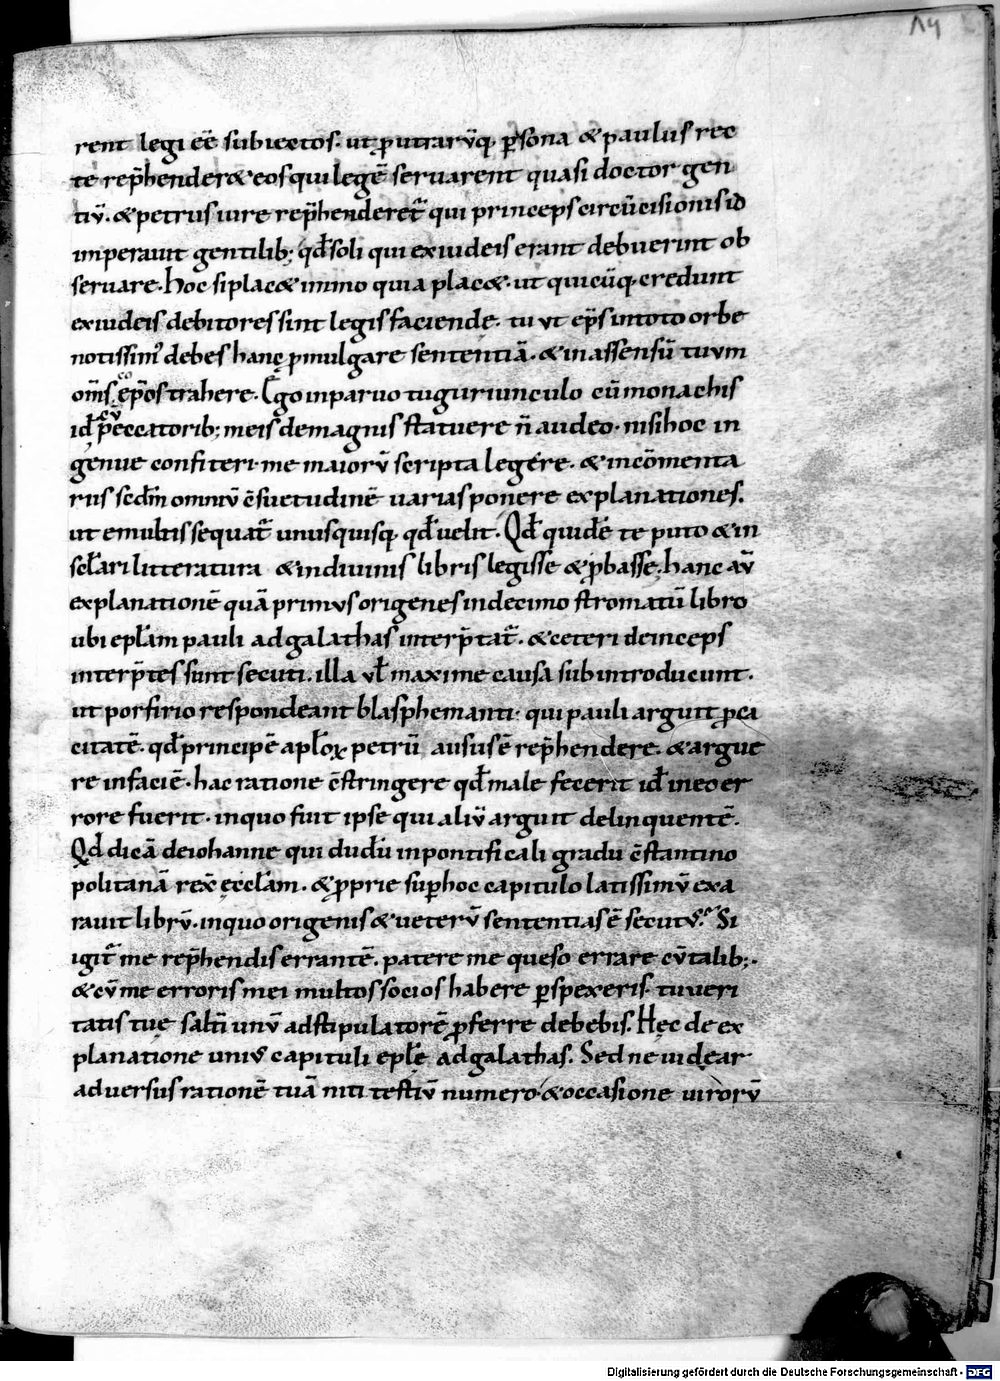 14
rent legi eē subiectos. ut ꝓ utrarūq; ꝑsona & paulus rec
te rep̄hender& eos qui legē seruarent quasi doctor gen
tiū. & petrus iure rep̄henderet᷑ qui princeps circūcisionis id
imperauit gentilib; qđ soli qui ex iudeis erant debuerint ob
seruare. Hoc si plac& immo quia plac&. ut quicūq; credunt
ex iudeis debitores sint legis faciende. tu ut ep̄s in toto orbe
notissim᷒ debes hanc ꝓmulgare sententiā. & in assensū tuum
om̄s coep̄os trahere. Ego in paruo tuguriunculo cū monachis
id ē cū peccatorib; meis de magnis statuere n̄ audeo. nisi hoc in
genue confiteri me maiorū scripta legere. & in cōmenta
riis scd̄m omniū c̄suetudinē uarias ponere explanationes.
ut e multis sequat᷑ unusquisq; qđ uelit. Qđ quidē te puto & in
scl̄ari litteratura & in diuinis libris legisse & ꝓbasse. hanc aū
explanationē quā primus origenes in decimo stromatū libro
ubi epl̄am pauli ad galathas interp̄tat᷑. & ceteri deinceps
interp̄tes sunt secuti. illa ul̄ maxime causa subintroducunt.
ut porfirio respondeant blasphemanti. qui pauli arguit ꝓca
citatē. qđ principē apl̄oꝝ petrū ausus ē rep̄hendere. & argue
re in faciē. hac ratione c̄stringere qđ male fecerit id in eo er
rore fuerit. in quo fuit ipse qui aliū arguit delinquentē.
Qd dicā de iohanne qui dudū in pontificali gradu c̄stantino
politanā rex̄ ęccl̄am. & ꝓprie suꝑ hoc capitulo latissimū exa
rauit librū. in quo origenis & ueterū sententias ē secutus. Si
igit᷑ me rep̄hendis errantē. patere me queso errare cū talib;.
& cū me erroris mei multos socios habere ꝑspexeris. tu ueri
tatis tuę saltī unū adstipulatorē ꝓferre debebis. Hęc de ex
planatione unius capituli epl̄e ad galathas. Sed ne uidear
aduersus rationē tuā niti testiū numero. & occasione uirorū
Digitalisierung gefördert durch die Deutsche Forschungsgemeinschaft - DFG